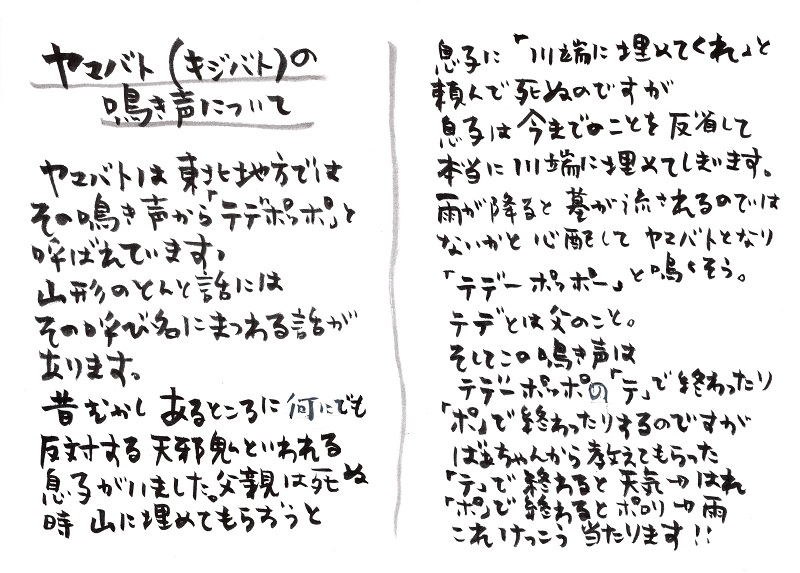 ヤマバト(キジバト)の
鳴き声について
ヤマバトは東北地方では
その鳴き声から「テデポッポ」と
呼ばれています。
山形のとんと話には
その呼び名にまつわる話が
あります。
昔むかし あるところに 何にでも
反対する 天邪鬼といわれる
息子がいました。父親は死ぬ
時 山に埋めてもらおうと
息子に「川端に埋めてくれ」と
頼んで死ぬのですが
息子は今までのことを反省して
本当に川端に埋めてしまいます。
雨が降ると墓が流されるのでは
ないかと心配して ヤマバトとなり
「テデーポッポー」と鳴くそう。
テデとは父のこと。
そしてこの鳴き声は
テデーポッポの「テ」で終わったり
「ポ」で終わったりするのですが
ばあちゃんから教えてもらった
「テ」で終わると天気→はれ
「ポ」で終わるとポロリ→雨
これけっこう当たります!!